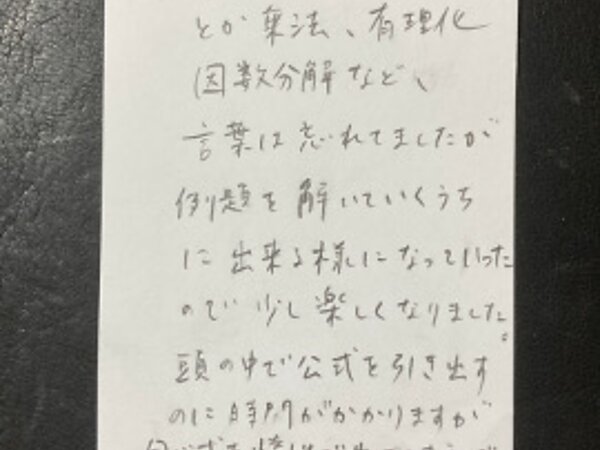 とか乗法、有理化
因数分解など、
言葉は忘れてましたが
例題を解いていくうち
に出来る様になっていった
ので少し楽しくなりました。
頭の中で公式を引き出す
のに時間がかかりますが